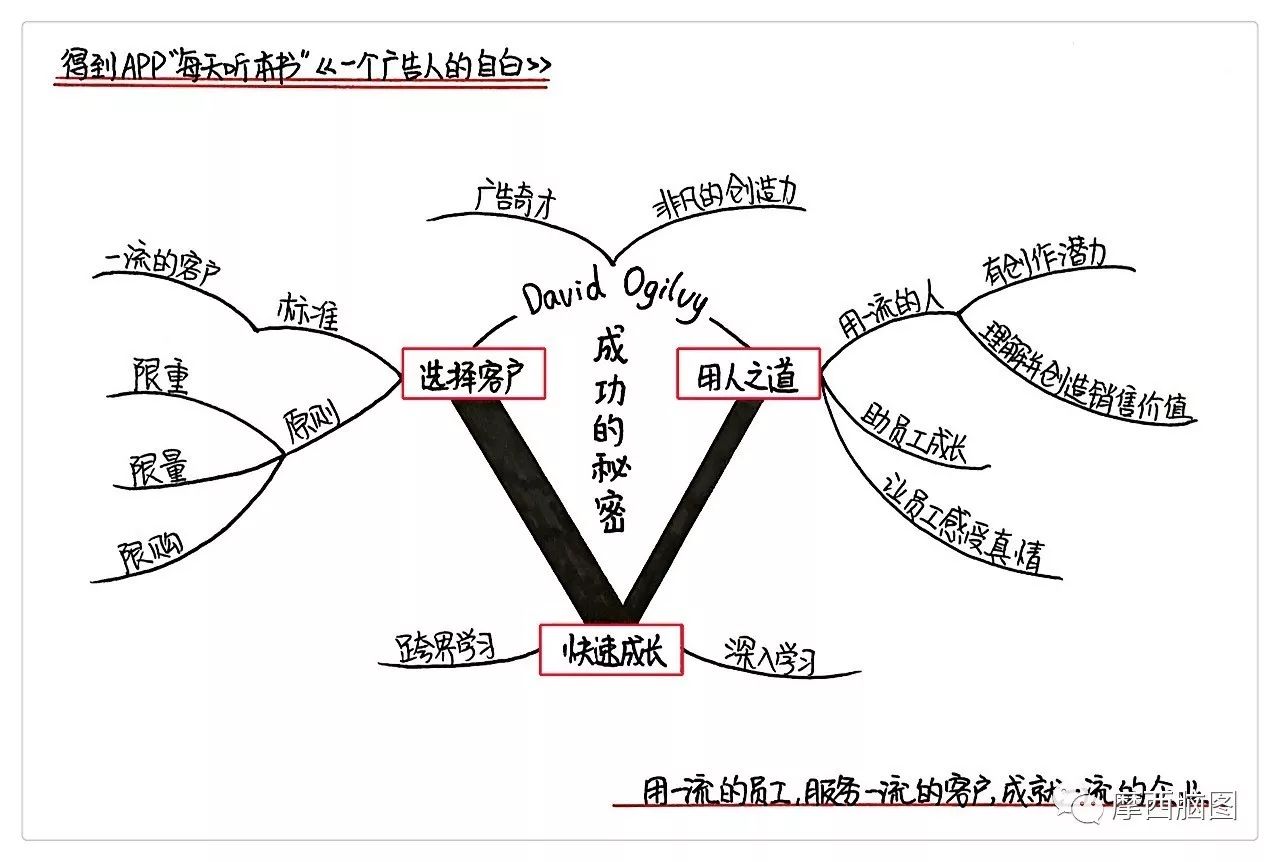 得到APP“每天听本书”《一个广告人的自白》
广告奇才
非凡的创造力
David Ogilvy
成功的秘密
选择客户
标准
一流的客户
原则
限重
限量
限购
用人之道
用一流的人
有创作潜力
理解并创造销售价值
助员工成长
让员工感受真情
快速成长
跨界学习
深入学习
用一流的员工,服务一流的客户,成就一流的企业
摩西脑图